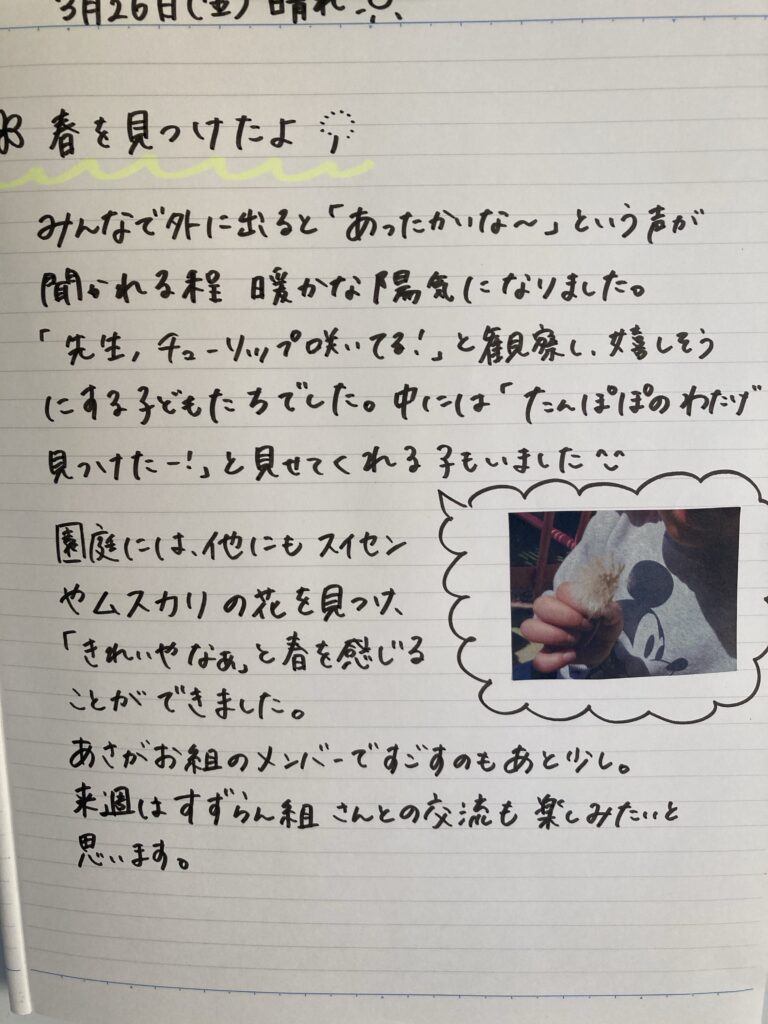 3月26日(金) 晴れ
春を見つけたよ
みんなで外に出ると「あったかいな〜」という声が
聞かれる程 暖かな陽気になりました。
「先生,チューリップ咲いてる!」と観察し、嬉しそう
にする子どもたちでした。中には「たんぽぽのわたげ
見つけたー!」と見せてくれる子もいました
園庭には、他にもスイセン
やムスカリの花を見つけ、
「きれいやなぁ」と春を感じる
ことができました。
あさがお組のメンバーですごすのもあと少し。
来週はすずらん組さんとの交流も楽しみたいと
思います。